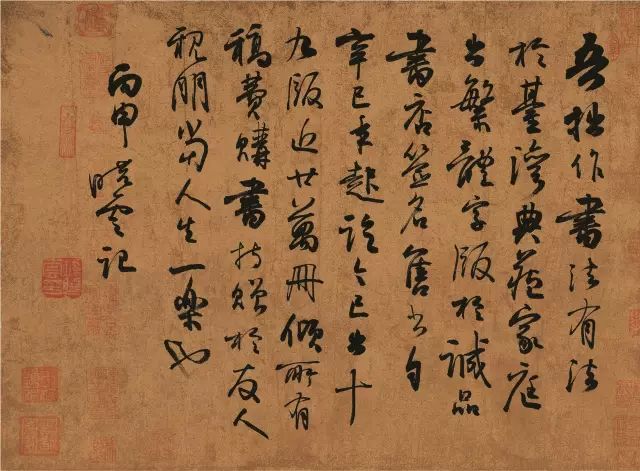 吾拙作書法有法
於臺灣典藏家庭
出繁體字版於誠品
書店簽名售書自
辛巳年起訖今已出十
九版近廿萬冊傾所有
稿費購書持贈於友人
視朋當人生一樂也
丙申曉雲記